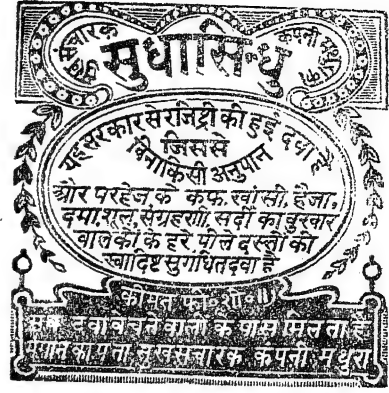 सुखसंचारक कंपनी मथुरा का
सुधासिन्धु
यह सरकार से रजिष्ट्री की हुई दवा है
जिससे
बिना किसी अनुपान
और परहेज़ के कफ, खांसी, हैजा,
दमा, शूल, संग्रहणी, सर्दी का बुखार
बालकों के हरे पीले दस्तों की
स्वादिष्ट सुगंधित दवा है
कीमत फी. शी. ॥)
सब दवा बेचने वालों के पास मिलता है
मंगाने का पता सुखसंचारक कंपनी मथुरा